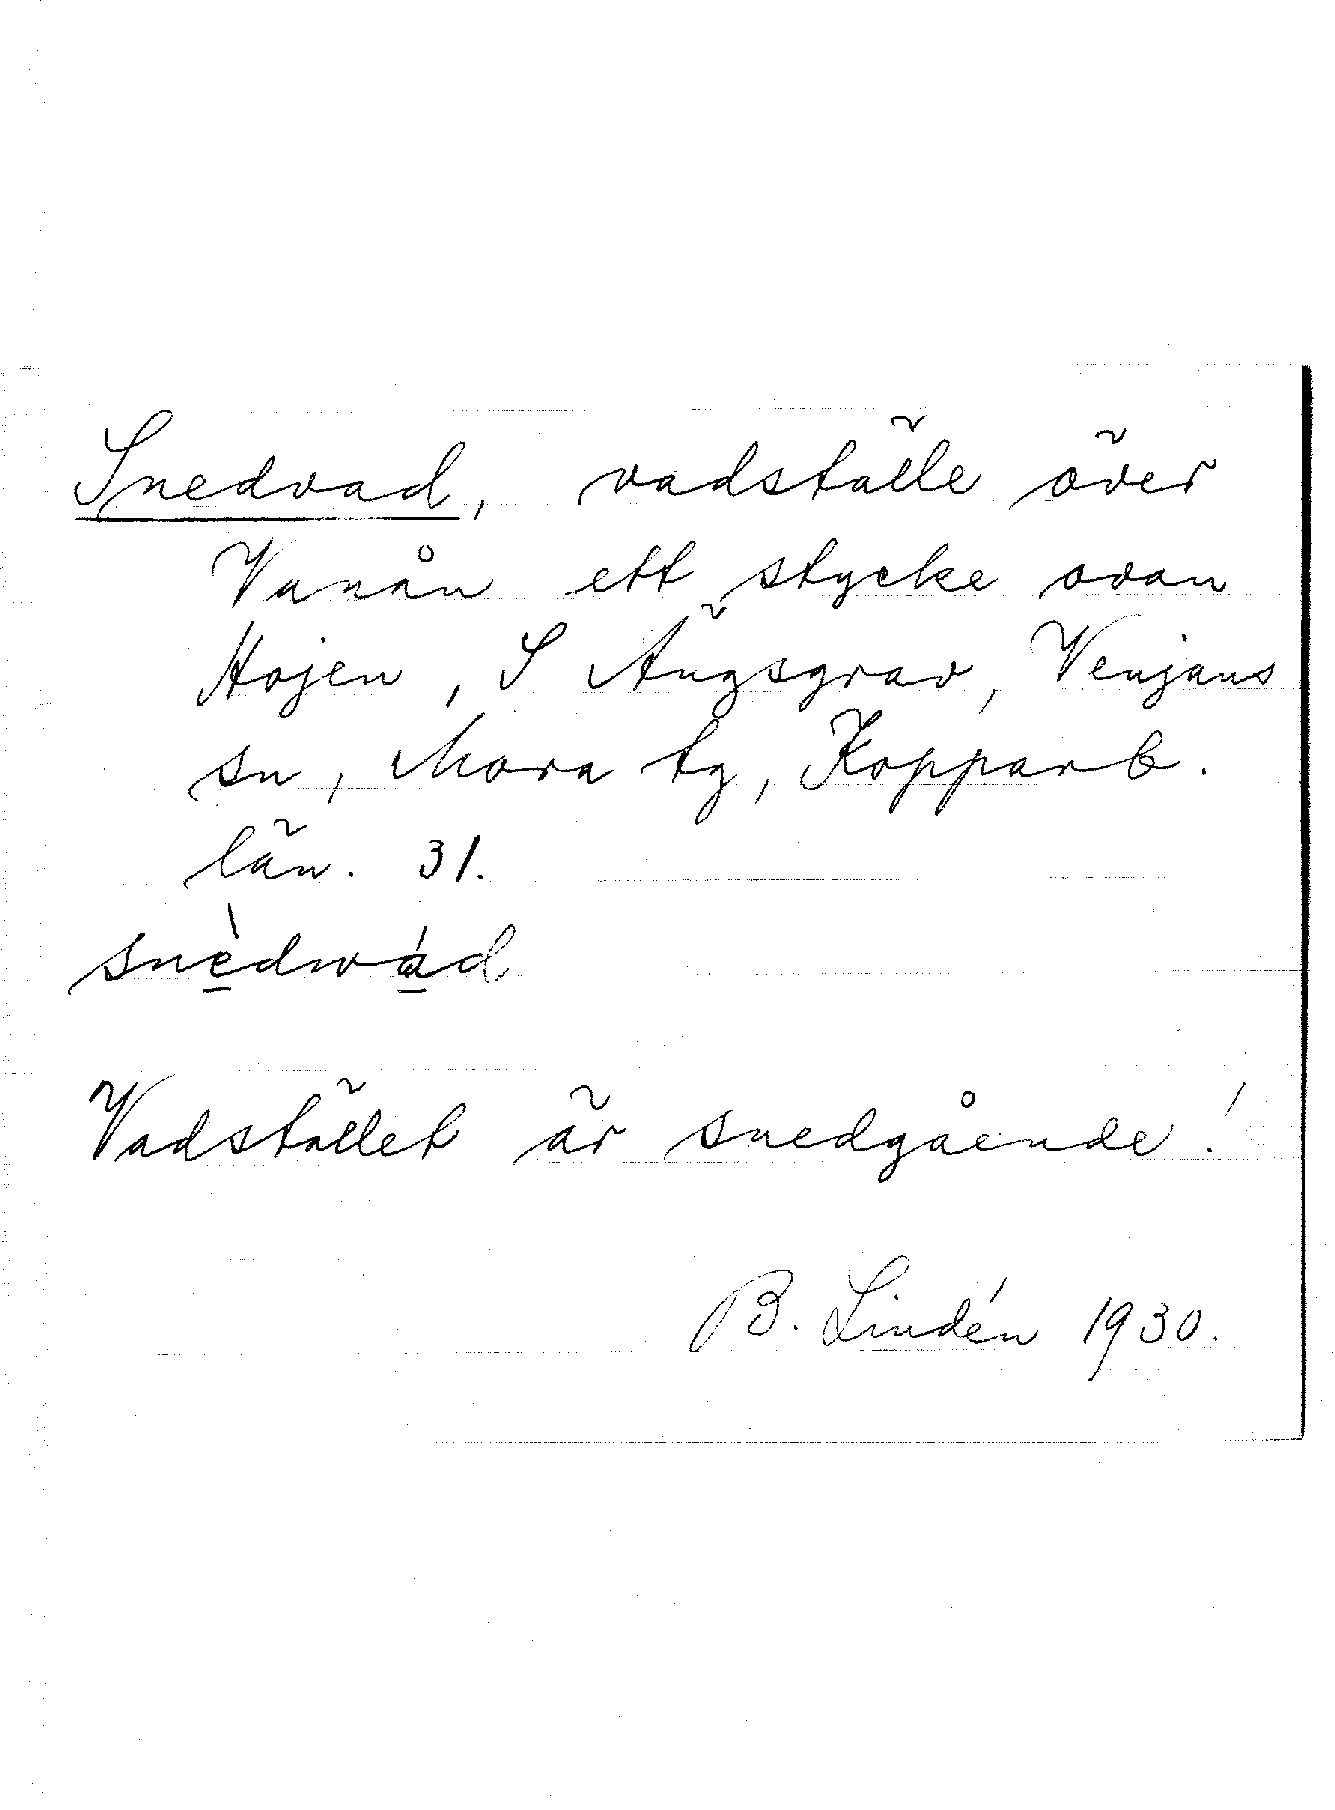 Snedvad, vadställe över
Vanån ett stycke ovan
Hojen, S Ängsgrav, Venjans
sn, Mora tg, Kopparb.
län. 31.
snè̱dwá̱d
Vadstället är snedgående!
B. Lindén 1930.